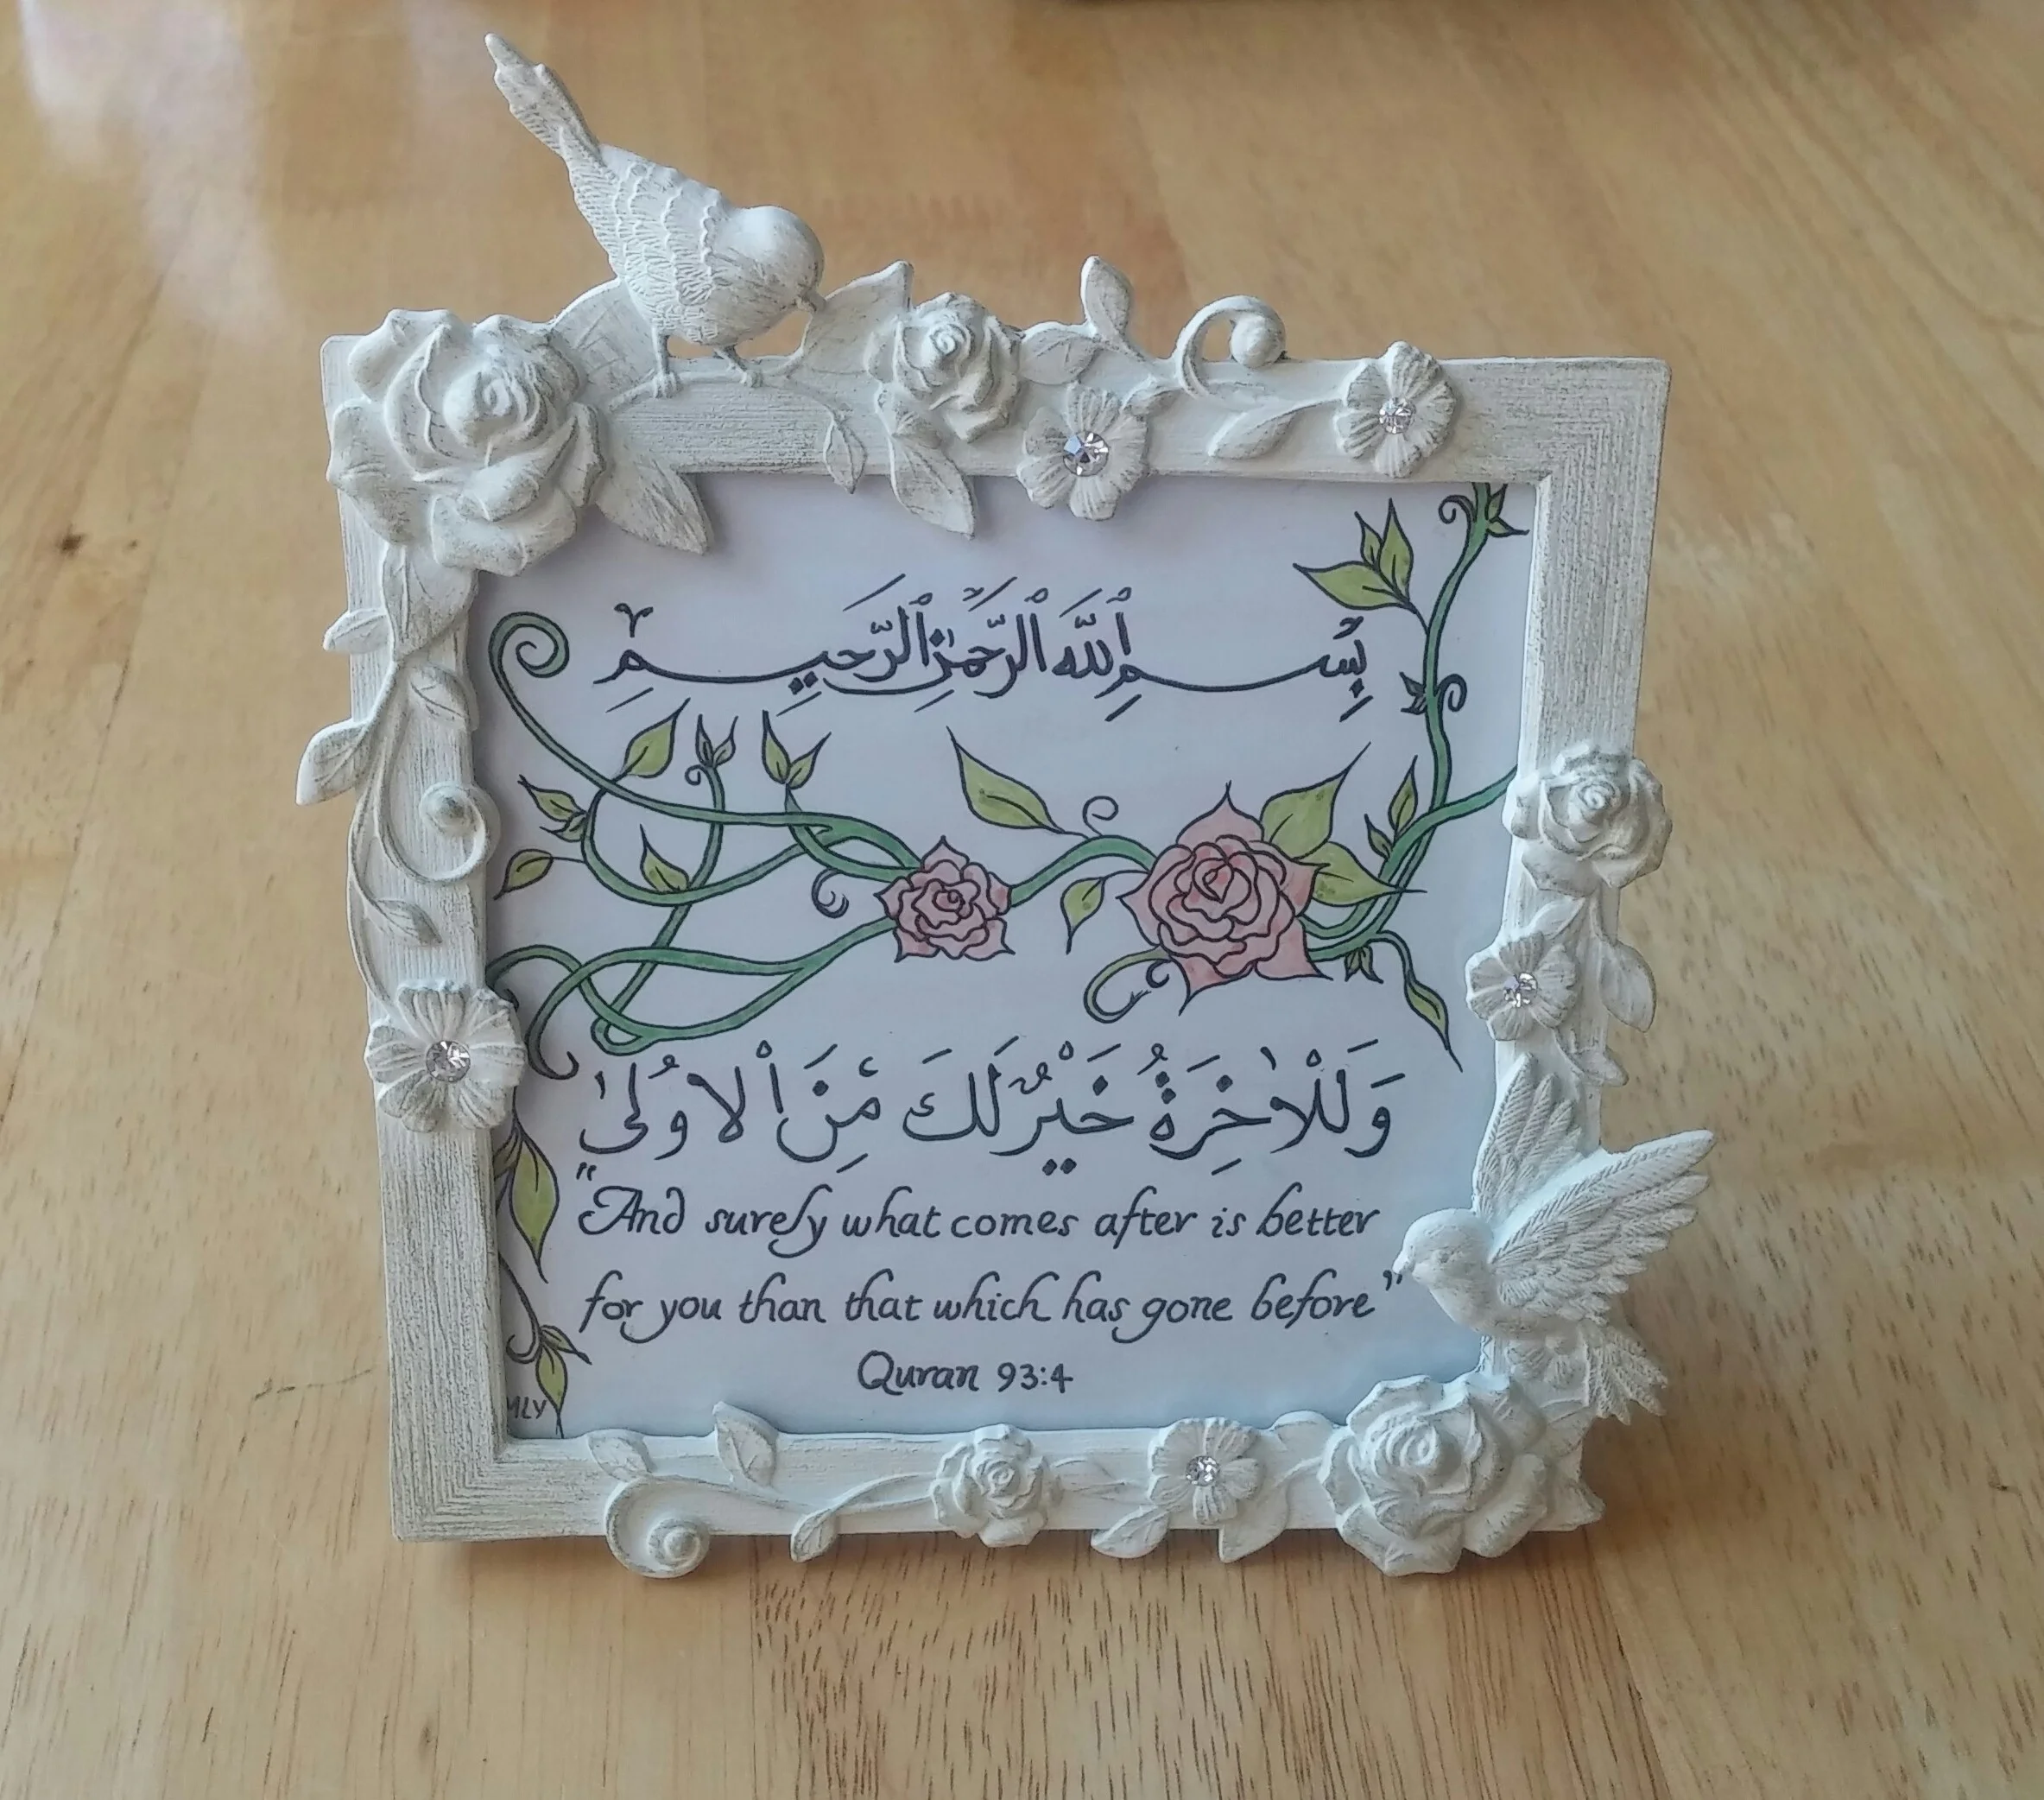 بِسْمِ ٱللَّهِ ٱلرَّحْمَٰنِ ٱلرَّحِيمِ
وَلَلْاٰخِرَةُ خَيْرٌ لَكَ مِنَ الْاُولىٰ
"And surely what comes after is better
for you than that which has gone before"
Quran 93:4
MLY